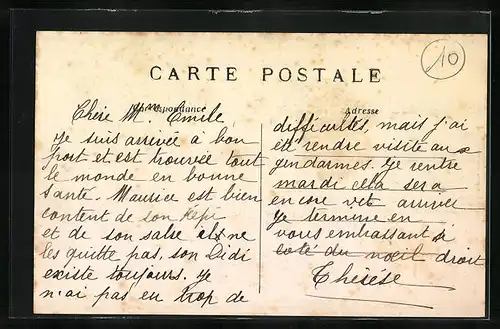 10
CARTE POSTALE
Correspondance
Adresse
Chère Mme Emile,
je suis arrivée à bon
port et est trouvée tout
le monde en bonne
santé. Maurice est bien
content de son képi
et de son sabre il ne
les quitte pas, son Didi
existe toujours. je
n'ai pas eu trop de
difficultés, mais j'ai
été rendre visite aux
gendarmes. je rentre
mardi cela sera
encore vite arrivé
je termine en
vous embrassant
coté du noeil droit
Thérèse